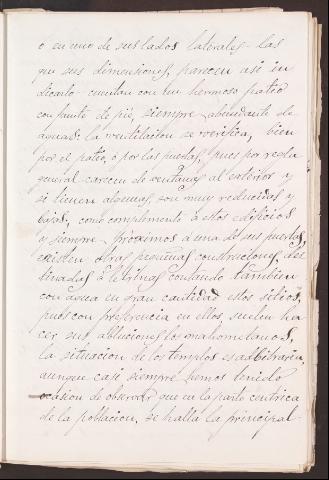 o en uno de sus lados laterales las
que sus dimensiones, parecen asi in
dicarlo cuentan con un hermoso patio
con fuente de pie, siempre abundante de
agua; la ventilacion se verifica, bien
por el patio, ó por las puertas, pues por regla
general carecen de ventanas al exterior y
si tienen algunas, son muy reducidas y
bajas; como complemento á estos edificios
y siempre proximos á una de sus puertas,
existen otras pequeñas construcciones, des
tinadas á letrinas contando tambien
con agua en gran cantidad estos sitios,
pues con preferencia en ellos suelen ha
cer sus abluciones los mahometanos,
la situacion de los templos es adbitraria,
aunque casi siempre hemos tenido
ocasion de observar que en la parte centrica
de la poblacion, se halla la principal